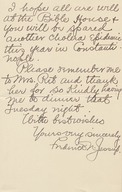 I hope all are well
at the Bible House &
you will be spared
another cholera epidemic
this year in Constanti
nople.
Please remember me
to Mrs. Peet and thank
her for so kindly having
me to dinner that
Tuesday night.
With best wishes
Yours very sincerely
Frances